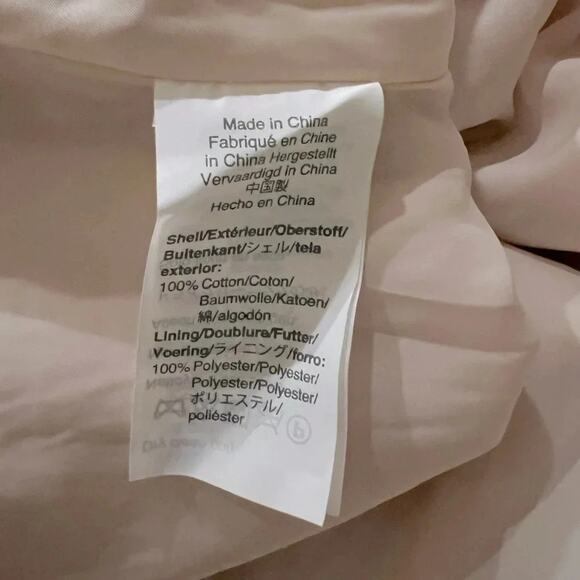 Made in China
Fabriqué en Chine
in China Hergestellt
Vervaardigd in China
中国製
Hecho en China
Shell/Extérieur/Oberstoff/
Buitenkant/シェル/tela
exterior:
100% Cotton/Coton/
Baumwolle/Katoen/
綿/algodón
Lining/Doublure/Futter/
Voering/ライニング/forro:
100% Polyester/Polyester/
Polyester/Polyester/
ポリエステル/
poliéster